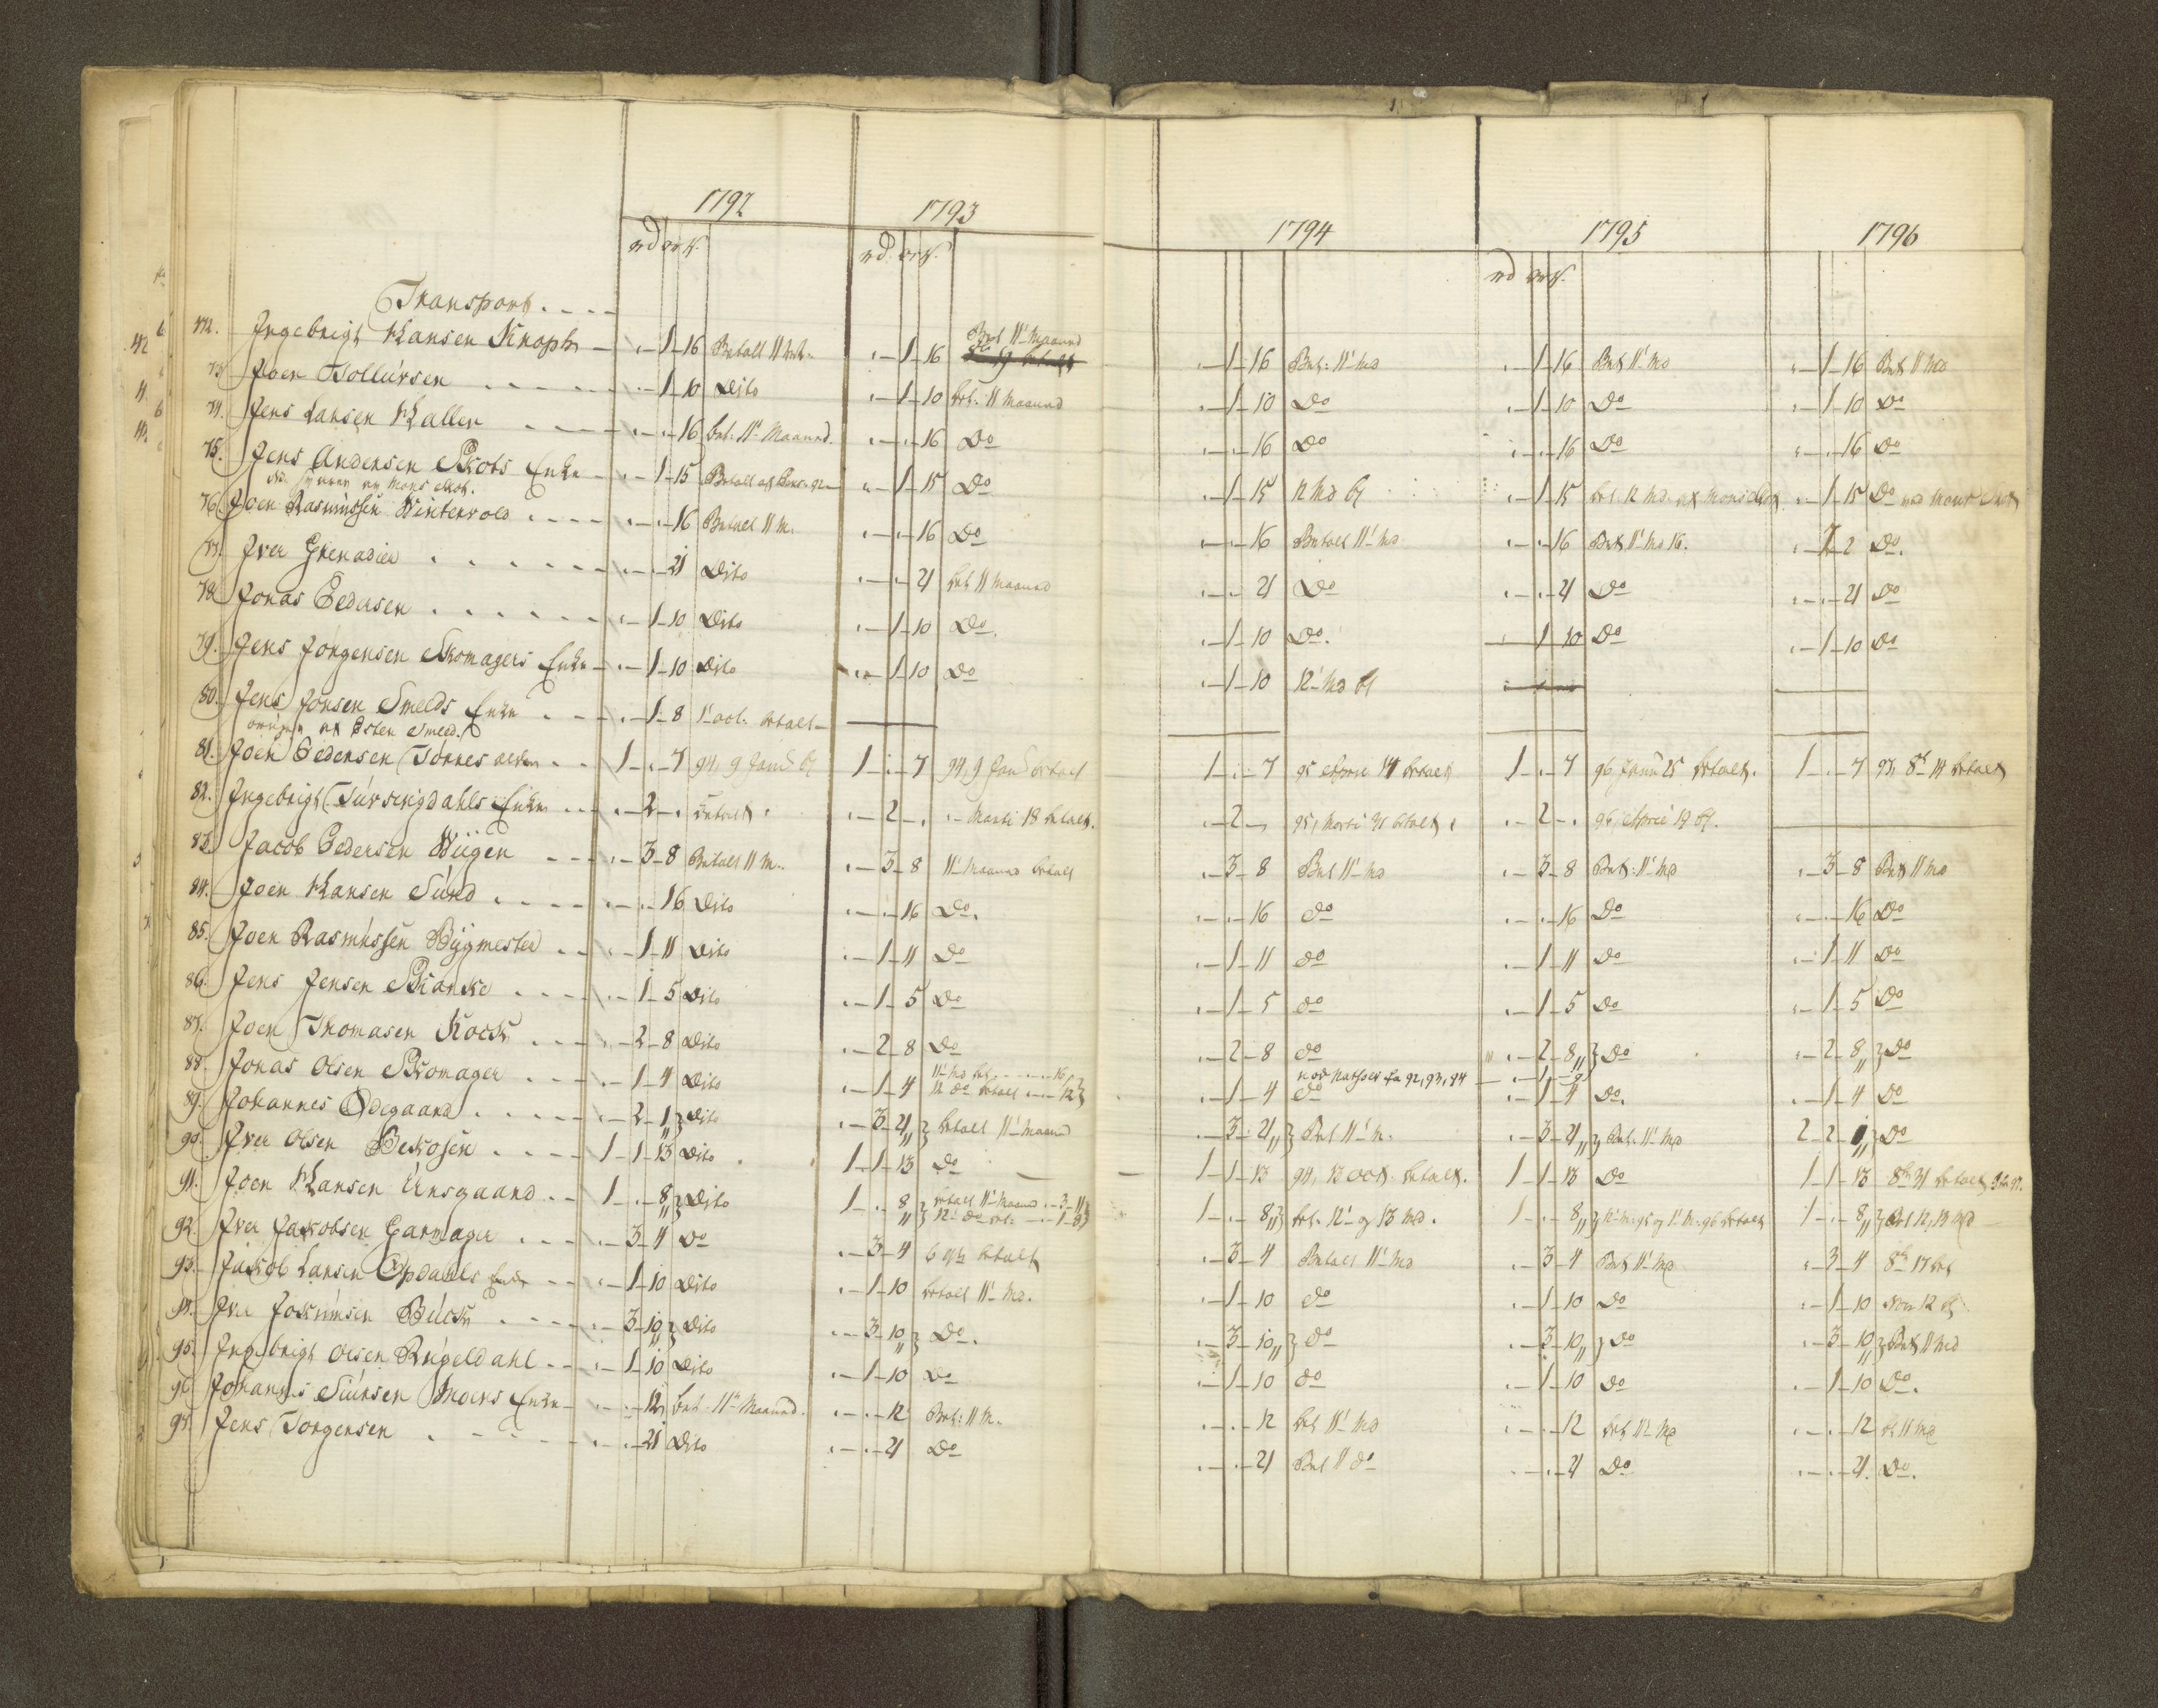 1792 1793 1794 1795 1796
rd ort ß. rd. ort ß. rd ort ß.
Transport ....
72. Ingebrigt Hansen Knoph - " - 1 - 16 Betalt 11 " - 1 - 16 Bet 11' Maaned " - 1 - 16 Bet: 11' Md " - 1 - 16 Bet 11' Md " - 1 - 16 Bet 11 Md
73 Joen Tollefsen " - 1 - 10 Dito " - 1 - 10 bet. 11 Maaned " - 1 - 10 Do " - 1 - 10 Do " - 1 - 10 Do
74. Jens Larsen Haller " - " - 16 bet: 11' Maaned. " - " - 16 Do " - " - 16 Do " - " - 16 Do " - " - 16 Do
75. Jens Andersen Skots Enke " - 1 - 15 Betalt " - 1 - 15 Do " - 1 - 15 12 Md bt " - 1 - 15 bet. 12 Md. " - 1 - 15 Do
76 Joen Rasmussen Vintervold " - " - 16 Betalt 11 M. " - " - 16 Do " - " - 16 Betalt 11' Md " - " - 16 Bet 11' Md 16. " - 1 - 2 Do.
77. Iver Grenader " - " - 21 Dito " - " - 21 bet 11 Maaned " - " - 21 Do " - " - 21 Do " - " - 21 Do
78 Jonas Pedersen " - 1 - 10 Dito " - 1 - 10 Do. " - 1 - 10 Do. " - 1 - 10 Do " - 1 - 10 Do
79. Jens Jörgensen Skomagers Enke " - 1 - 10 Dito " - 1 - 10 Do " - 1 - 10 12' Md bt
80. Jens Jonsen Smeds Enke " - 1 - 8 1' oct. betalt
Esten Smeed.
81. Joen Pedersen Tørnes 1 - " - 7 94, 9 Janu bt 1 - " - 7 94, 9 Jan betalt 1 - " - 7 95 April 14 betalt 1 - " - 7 96 Janu 25 betalt. 1 - " - 7 97, 8br 14 betalt
82. Ingebrigt Enke " - 2 - " betalt " - 2 - " Marti 18 betalt. " - 2 - " 95, Marti 31 btalt " - 2 - " 96, April 19 bt.
83. Jacob Pedersen Wiigen " - 3 - 8 Betalt 11 M. " - 3 - 8 11' Maaned betalt " - 3 - 8 Bet 11' Md " - 3 - 8 Bet: 11' Md " - 3 - 8 Bet 11 Md
84. Joen Hansen Sund " - " - 16 Dito " - " - 16 Do. " - " - 16 do " - " - 16 Do " - " - 16 Do
85. Joen Rasmussen Bygmester " - 1 - 11 Dito " - 1 - 11 Do " - 1 - 11 do " - 1 - 11 Do " - 1 - 11 Do
86. Jens Jensen " - 1 - 5 Dito " - 1 - 5 Do " - 1 - 5 do " - 1 - 5 Do " - 1 - 5 Do
87. Joen Thomasen Kock " - 2 - 8 Dito " - 2 - 8 Do " - 2 - 8 do " - 2 - 8 Do " - 2 - 8 Do
11' Md bet 16 92, 93, 94
88. Jonas Olsen Skomager " - 1 - 4 Dito " - 1 - 4 12 do betalt 12 " - 1 - 4 do " - 1 - 4 Do. " - 1 - 4 Do
89. Johannes Ødegaard " - 2 - 1 Dito " - 3 - 21 betalt 11' Maaned " - 3 - 21 Bet 11' M. " - 3 - 21 Bet: 11' Md 2 - 2 - 1 Do
90. Iver Olsen 1 - 1 - 13 Dito 1 - 1 - 13 Do 1 - 1 - 13 94, 13 oct. betalt. 1 - 1 - 13 Do 1 - 1 - 13 8br 31 betalt
91. Joen Hansen Unsgaard 1 - " - 8 Dito 1 - " - 8 betalt 11' Maaned 1 - " - 8 bet. 12' og 13 Md. 1 - " - 8 12' M: 95 og 1' M: 96 betalt 1 - " - 8 Bet 12, 13 Md
92. Iver Jakobsen Garmager " - 3 - 4 Do " - 3 - 4 betalt " - 3 - 4 Betalt 11' Md " - 3 - 4 Bet 11' Md " - 3 - 4 8br 17 bet
93. Jakob Larsen Opdahls Enke " - 1 - 10 Dito " - 1 - 10 betalt 11' Md. " - 1 - 10 do " - 1 - 10 Do " - 1 - 10 Nov 12 bt
94. Iver Jokumsen Buck " - 3 - 10 Dito " - 3 - 10 Do. " - 3 - 10 do " - 3 - 10 Do " - 3 - 10 Bet 11 Md
95. Ingebrigt Olsen Rugeldahl " - 1 - 10 Dito " - 1 - 10 Do " - 1 - 10 do " - 1 - 10 Do " - 1 - 10 Do.
96. Johannes Siursen Moens Enke " - " - 12 bet. 11' Maaned. " - " - 12 Bet: 11 M. " - " - 12 bet 11' Md " - " - 12 bet 11' Md " - " - 12 bt 11 Md
97. Jens Torgersen " - " - 21 Dito " - " - 21 Do " - " - 21 Bet 11 do " - " - 21 Do " - " - 21. Do.